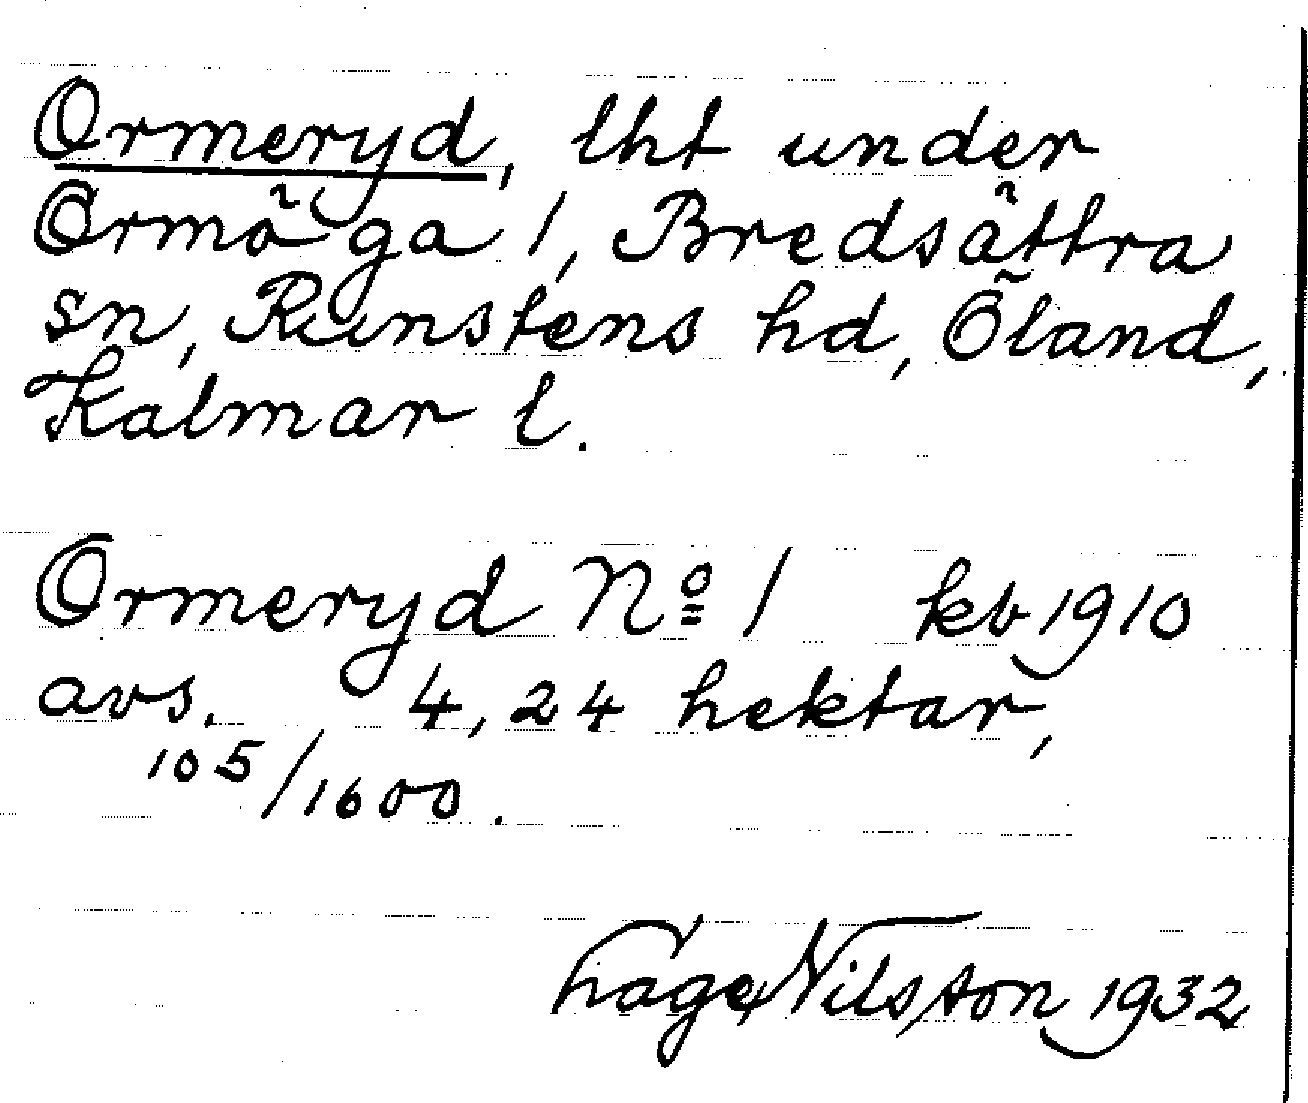 Ormeryd, lht under
Ormöga 1, Bredsättra
sn, Runstens hd, Öland,
Kalmar l.
Ormeryd Nº 1 kb 1910
avs. 4,24 hektar,
105/1600.
Håge Nilsson 1932